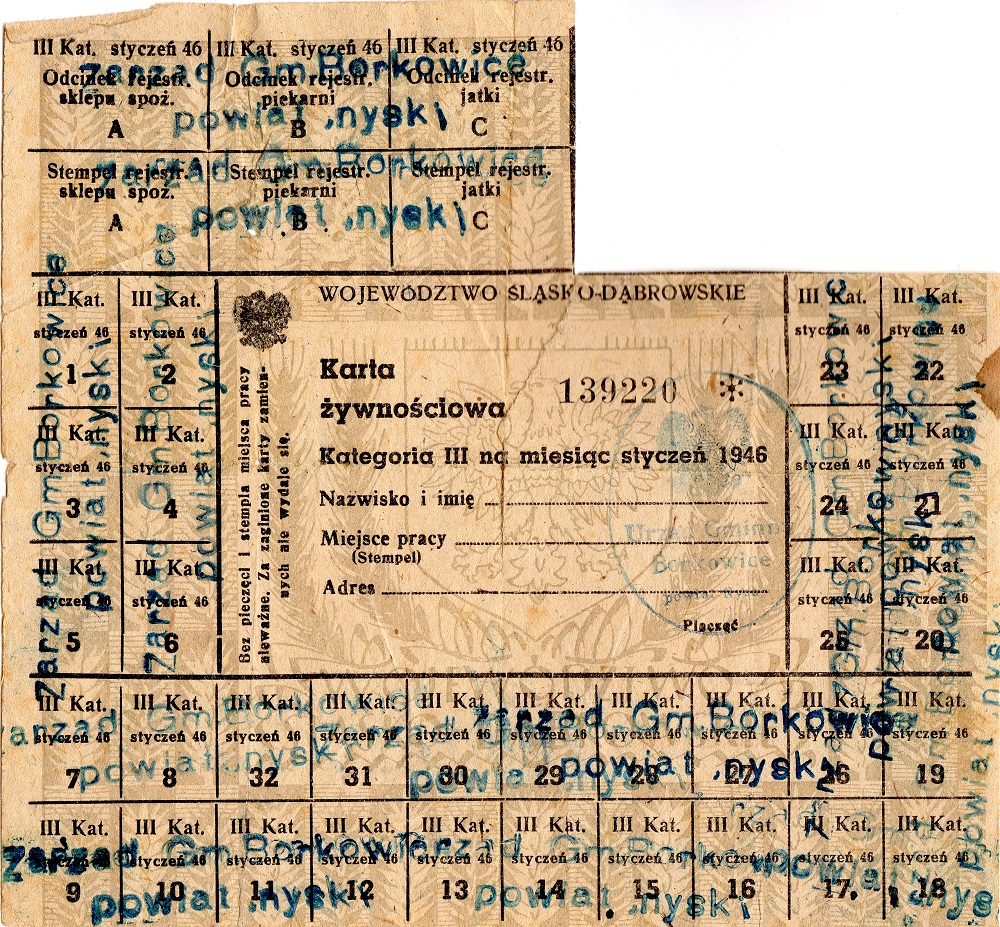 III Kat. styczeń 46 III Kat. styczeń 46 III Kat. styczeń 46
Odcinek rejestr. Odcinek rejestr. Odcinek rejestr.
sklepu spoż. piekarni jatki
A B C
Zarząd Gm Borkowice
powiat nyski
Stempel rejestr. Stempel rejestr. Stempel rejestr.
sklepu spoż. piekarni jatki
A B C
Zarząd Gm Borkowice
powiat nyski
WOJEWÓDZTWO ŚLĄSKO-DĄBROWSKIE
Karta
żywnościowa
139220 *
Kategoria III na miesiąc styczeń 1946
Nazwisko i imię
Miejsce pracy
(Stempel)
Adres
Pieczęć
Urząd Gminy
Borkowice
Bez pieczęci i stempla miejsca pracy
nieważne. Za zaginione karty zamien-
nych nie wydaje się.
III Kat. III Kat. III Kat. III Kat.
styczeń 46 styczeń 46 styczeń 46 styczeń 46
1 2 23 22
III Kat. III Kat. III Kat. III Kat.
styczeń 46 styczeń 46 styczeń 46 styczeń 46
3 4 24 21
III Kat. III Kat. III Kat. III Kat.
styczeń 46 styczeń 46 styczeń 46 styczeń 46
5 6 25 20
Zarząd Gm Borkowice
powiat nyski
Zarząd Gm Borkowice
powiat nyski
III Kat. III Kat. III Kat. III Kat. III Kat. III Kat. III Kat. III Kat. III Kat. III Kat.
styczeń 46 styczeń 46 styczeń 46 styczeń 46 styczeń 46 styczeń 46 styczeń 46 styczeń 46 styczeń 46 styczeń 46
7 8 32 31 30 29 28 27 26 19
Zarząd Gm Borkowice
powiat nyski
Zarząd Gm Borkowice
powiat nyski
III Kat. III Kat. III Kat. III Kat. III Kat. III Kat. III Kat. III Kat. III Kat. III Kat.
styczeń 46 styczeń 46 styczeń 46 styczeń 46 styczeń 46 styczeń 46 styczeń 46 styczeń 46 styczeń 46 styczeń 46
9 10 11 12 13 14 15 16 17 18
Zarząd Gm Borkowice
powiat nyski
powiat nyski